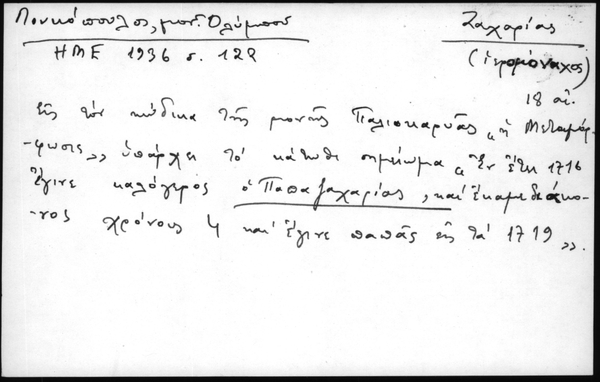 Πουκόπουλος, μον. Ολύμπου
Ζαχαρίας
ΗΜΕ 1936 σ. 122
(ἱερομόναχος)
18 αἰ.
Εἰς τὸν κώδικα τῆς μονῆς Παλιοκαρυᾶς «ἡ Μεταμόρ-
-φωσις» ὑπάρχει τὸ κάτωθι σημείωμα «Ἐν ἔτει 1716
ἔγινε καλόγερος ὁ Παπα Ζαχαρίας, καὶ ἔκαμε διάκο-
-νος χρόνους 4 καὶ ἔγινε παπᾶς εἰς τὰ 1719».